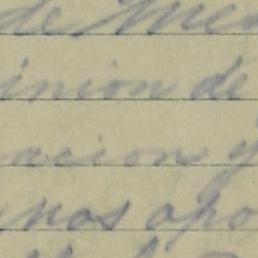 de Me
inion de
acion y
nos apo